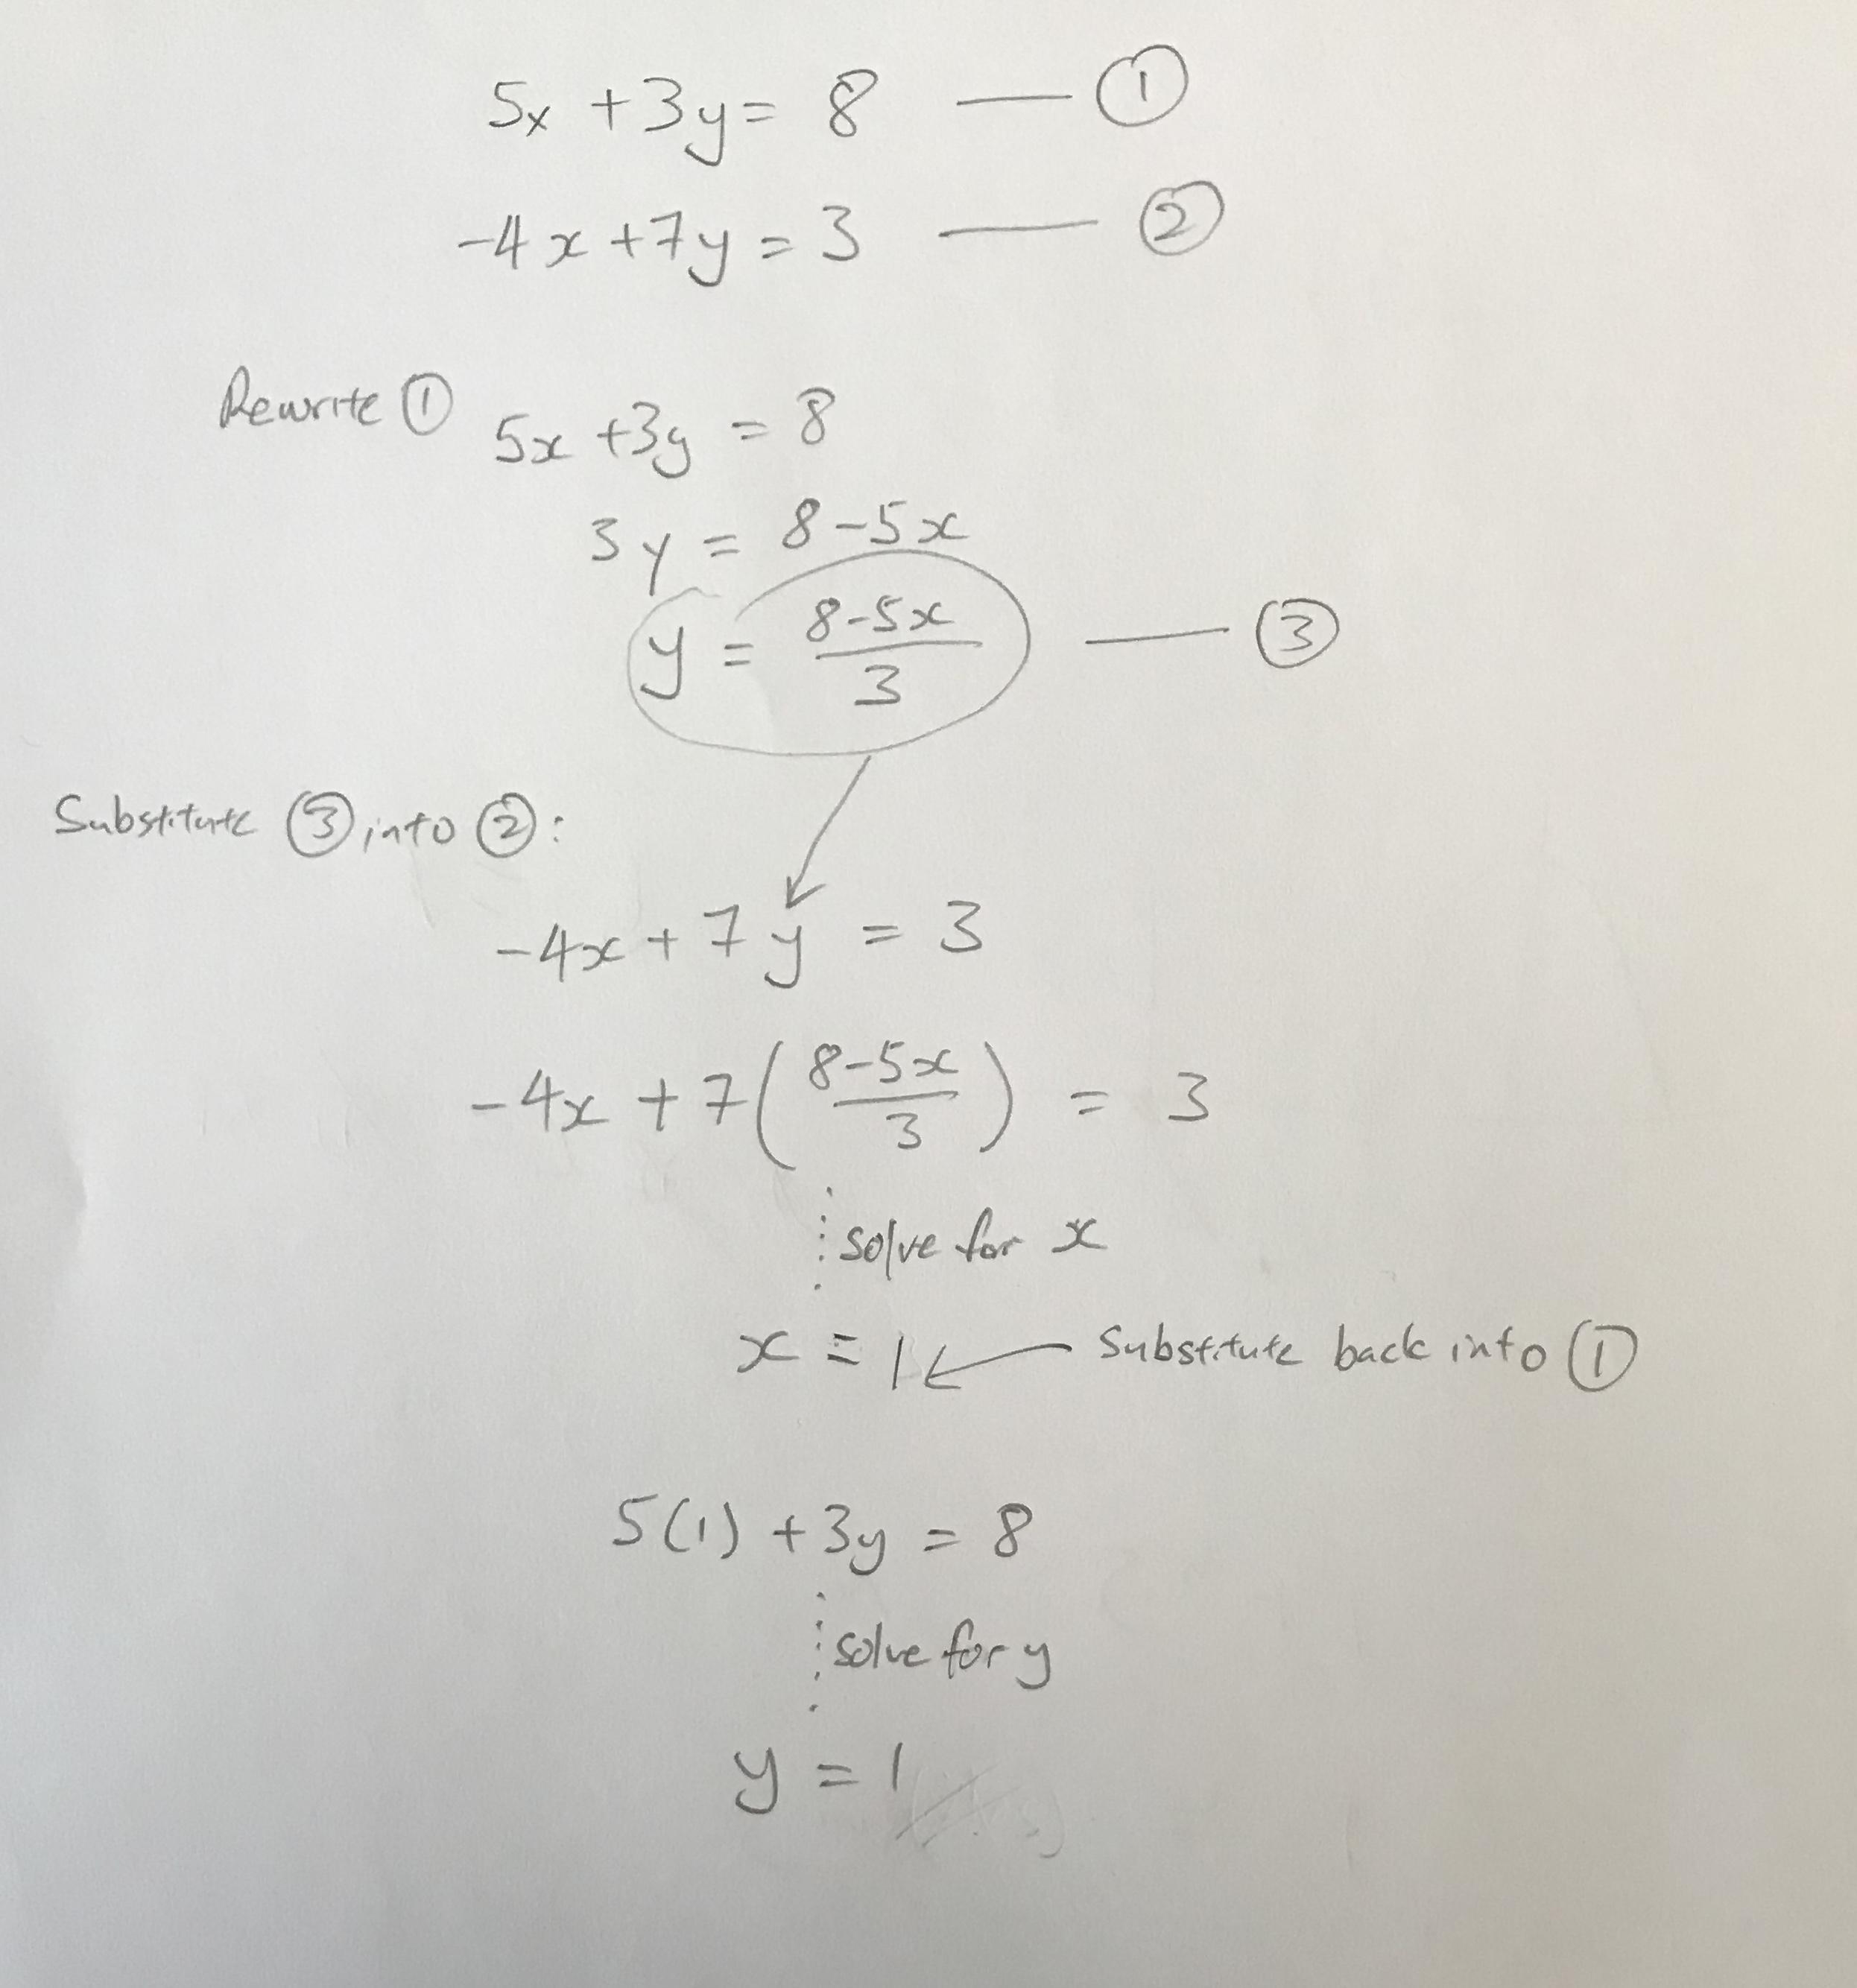 5x + 3y = 8 — ①
-4x + 7y = 3 — ②
Rewrite ① 5x + 3y = 8
3y = 8 - 5x
y = \frac{8-5x}{3} — ③
Substitute ③ into ② :
-4x + 7y = 3
-4x + 7(\frac{8-5x}{3}) = 3
⋮ solve for x
x = 1 ← Substitute back into ①
5(1) + 3y = 8
⋮ solve for y
y = 1